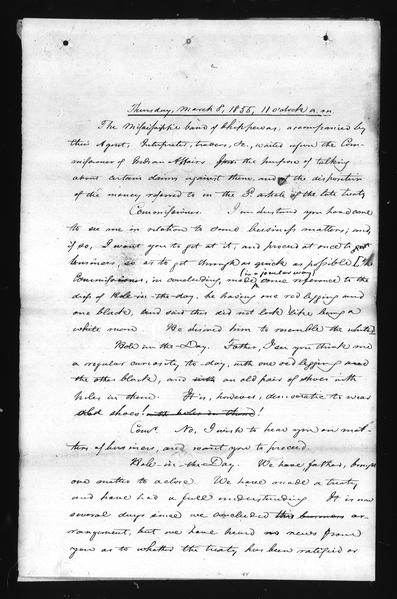 Thursday, March 8, 1855, 11 o'clock a.m.
The Mississippi band of Chippewas, accompanied by
their Agent, Interpreter, traders, &c., waited upon the Com-
missioner of Indian Affairs for the purpose of talking
about certain claims against them, and of the disposition
of the money referred to in the 3d article of the late treaty
Commissioner. I understand you have come
to see me in relation to some business matters; and,
if so, I want you to get at it, and proceed at once to
business, so as to get through as quick as possible [The
(in a jocular way)
Commissioner, in concluding, made some reference to the
dress of Hole-in-the-day, he having one red legging and
one black, and said this did not look like being a
white man. He desired him to resemble the whites]
Hole-in-the-Day. Father, I see you think me
a regular curiosity to-day, with one red legging and
the other black, and with an old pair of shoes with
holes in them. It is, however, democratic to wear
old shoes! with holes in them!
Comr. No, I wish to hear you on mat-
ters of business, and want you to proceed.
Hole-in-the-Day. We have, father, brought
one matter to a close. We have made a treaty
and have had a full understanding. It is now
several days since we concluded this business ar-
rangement, but we have heard no news from
you as to whether the treaty has been ratified or